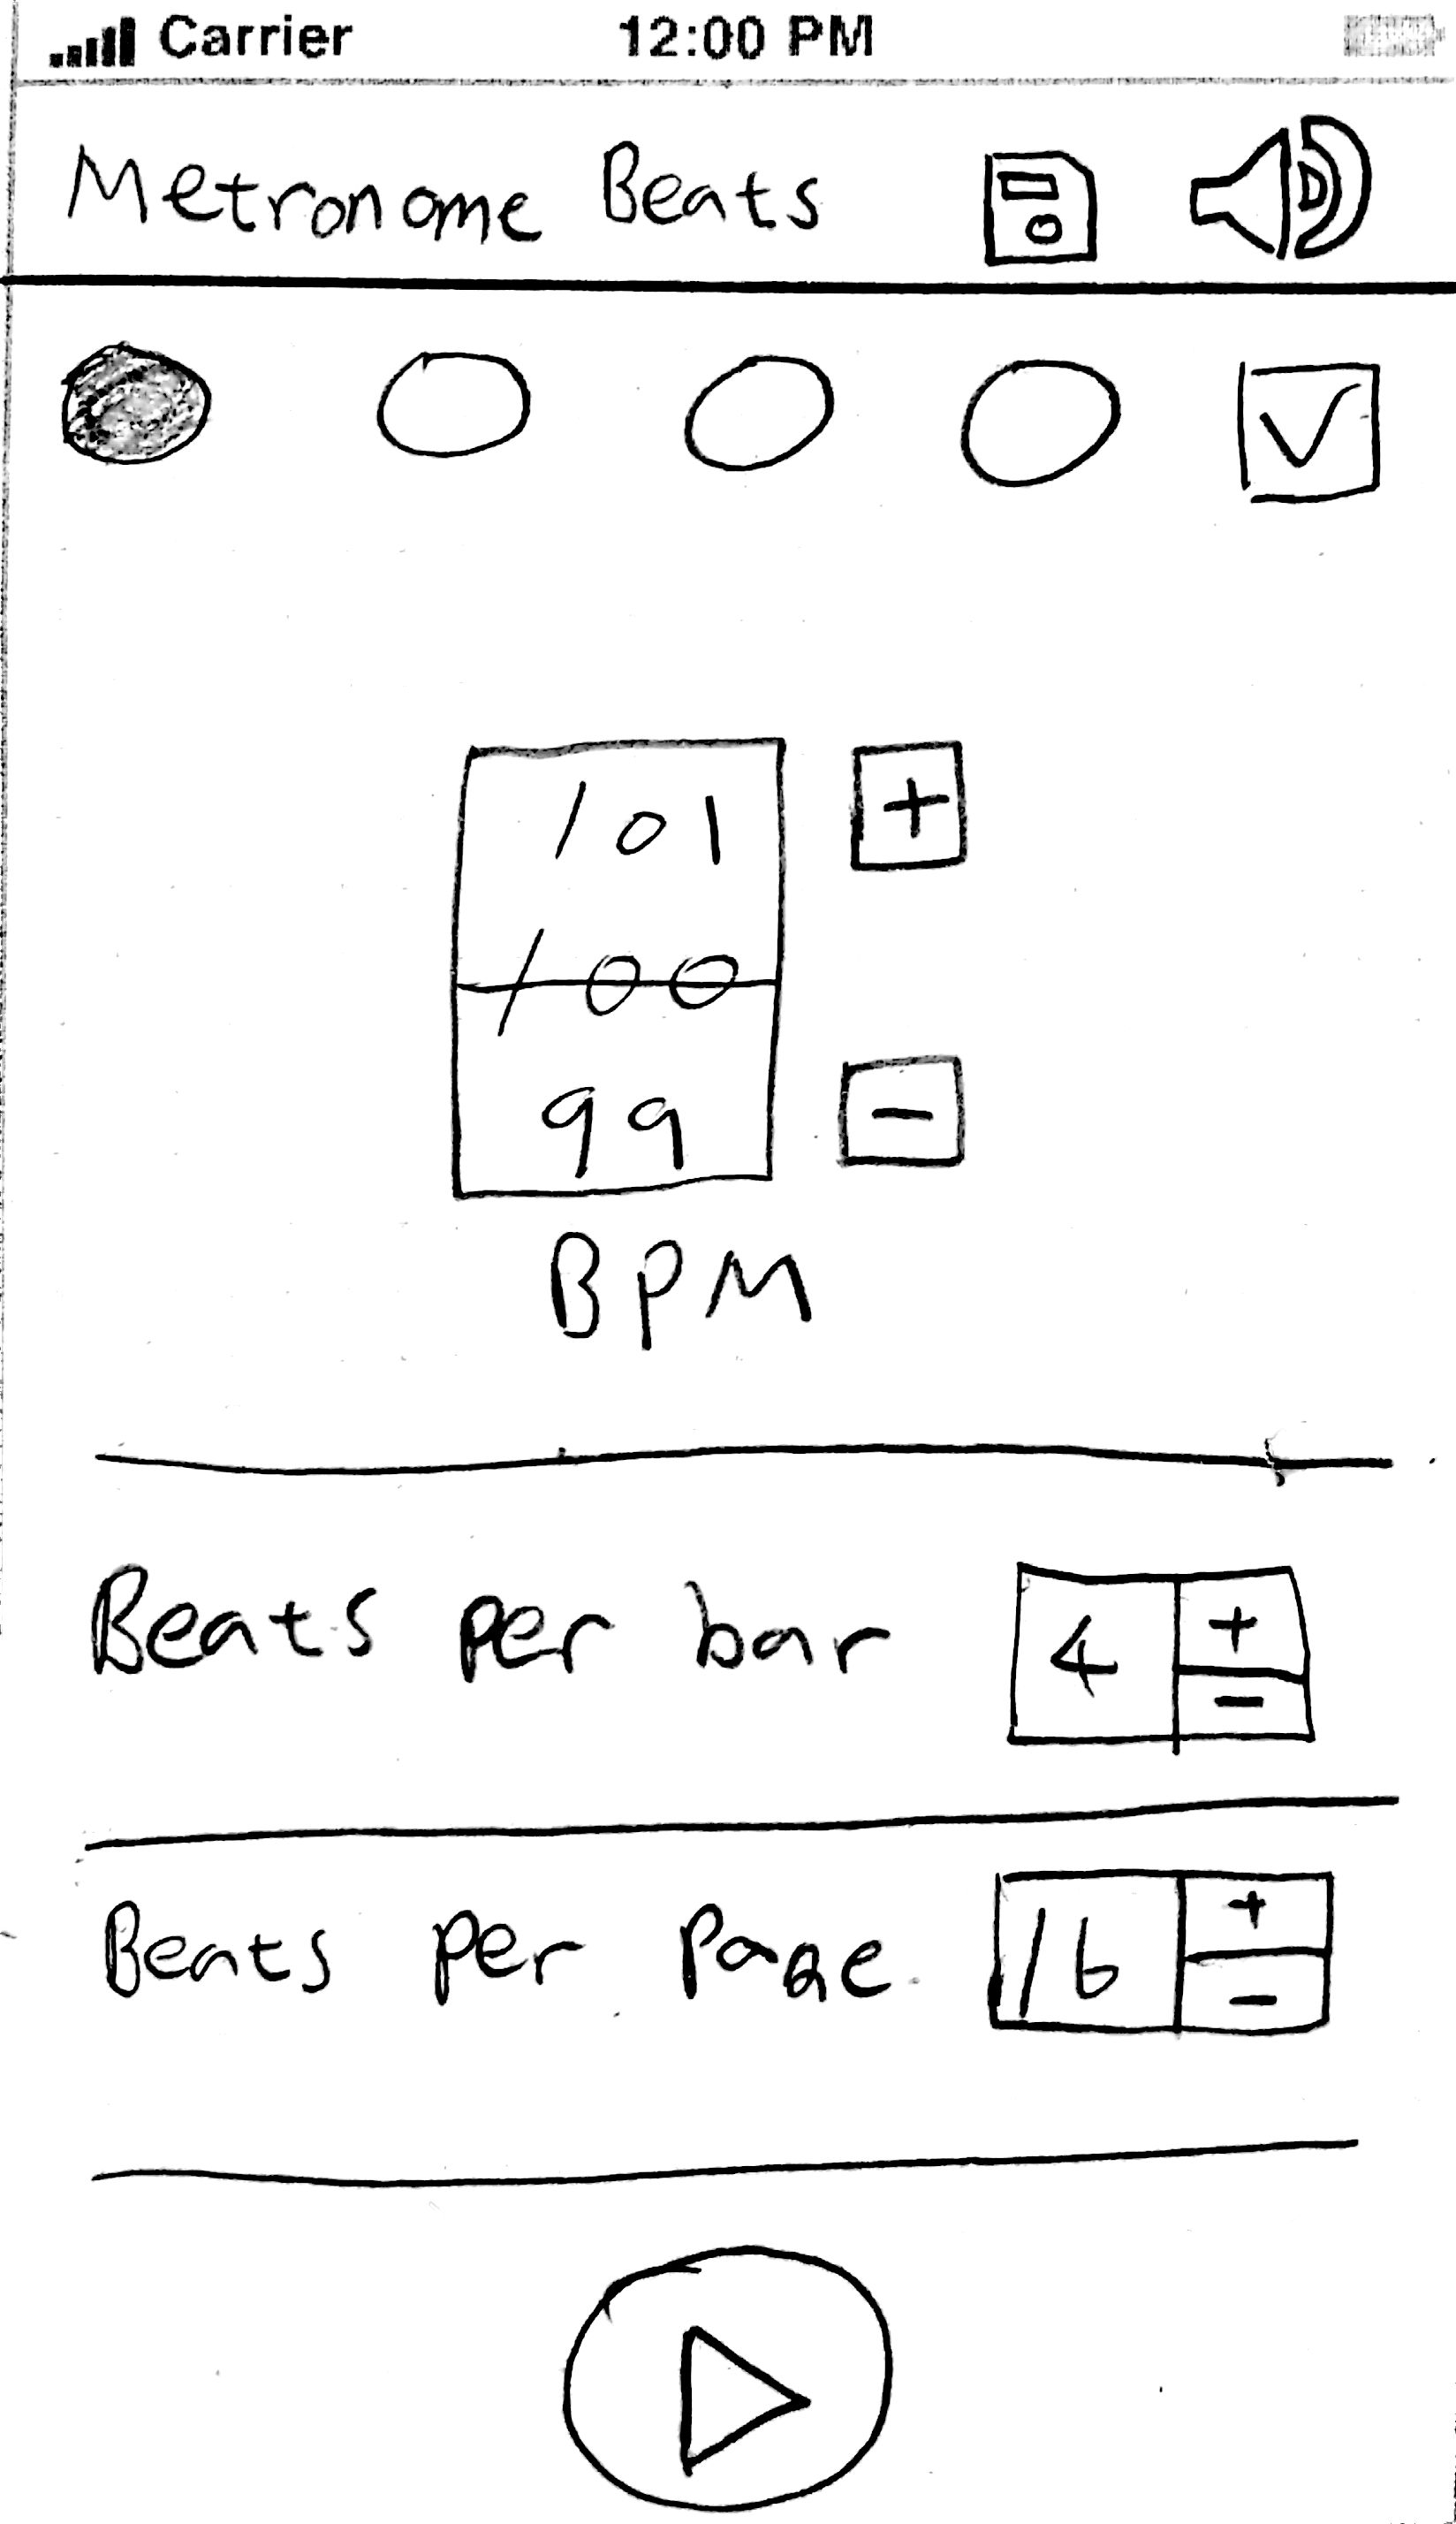 Carrier 12:00 PM
Metronome Beats
101
+
100
99
-
BPM
Beats per bar 4 + -
Beats per Page 16 + -